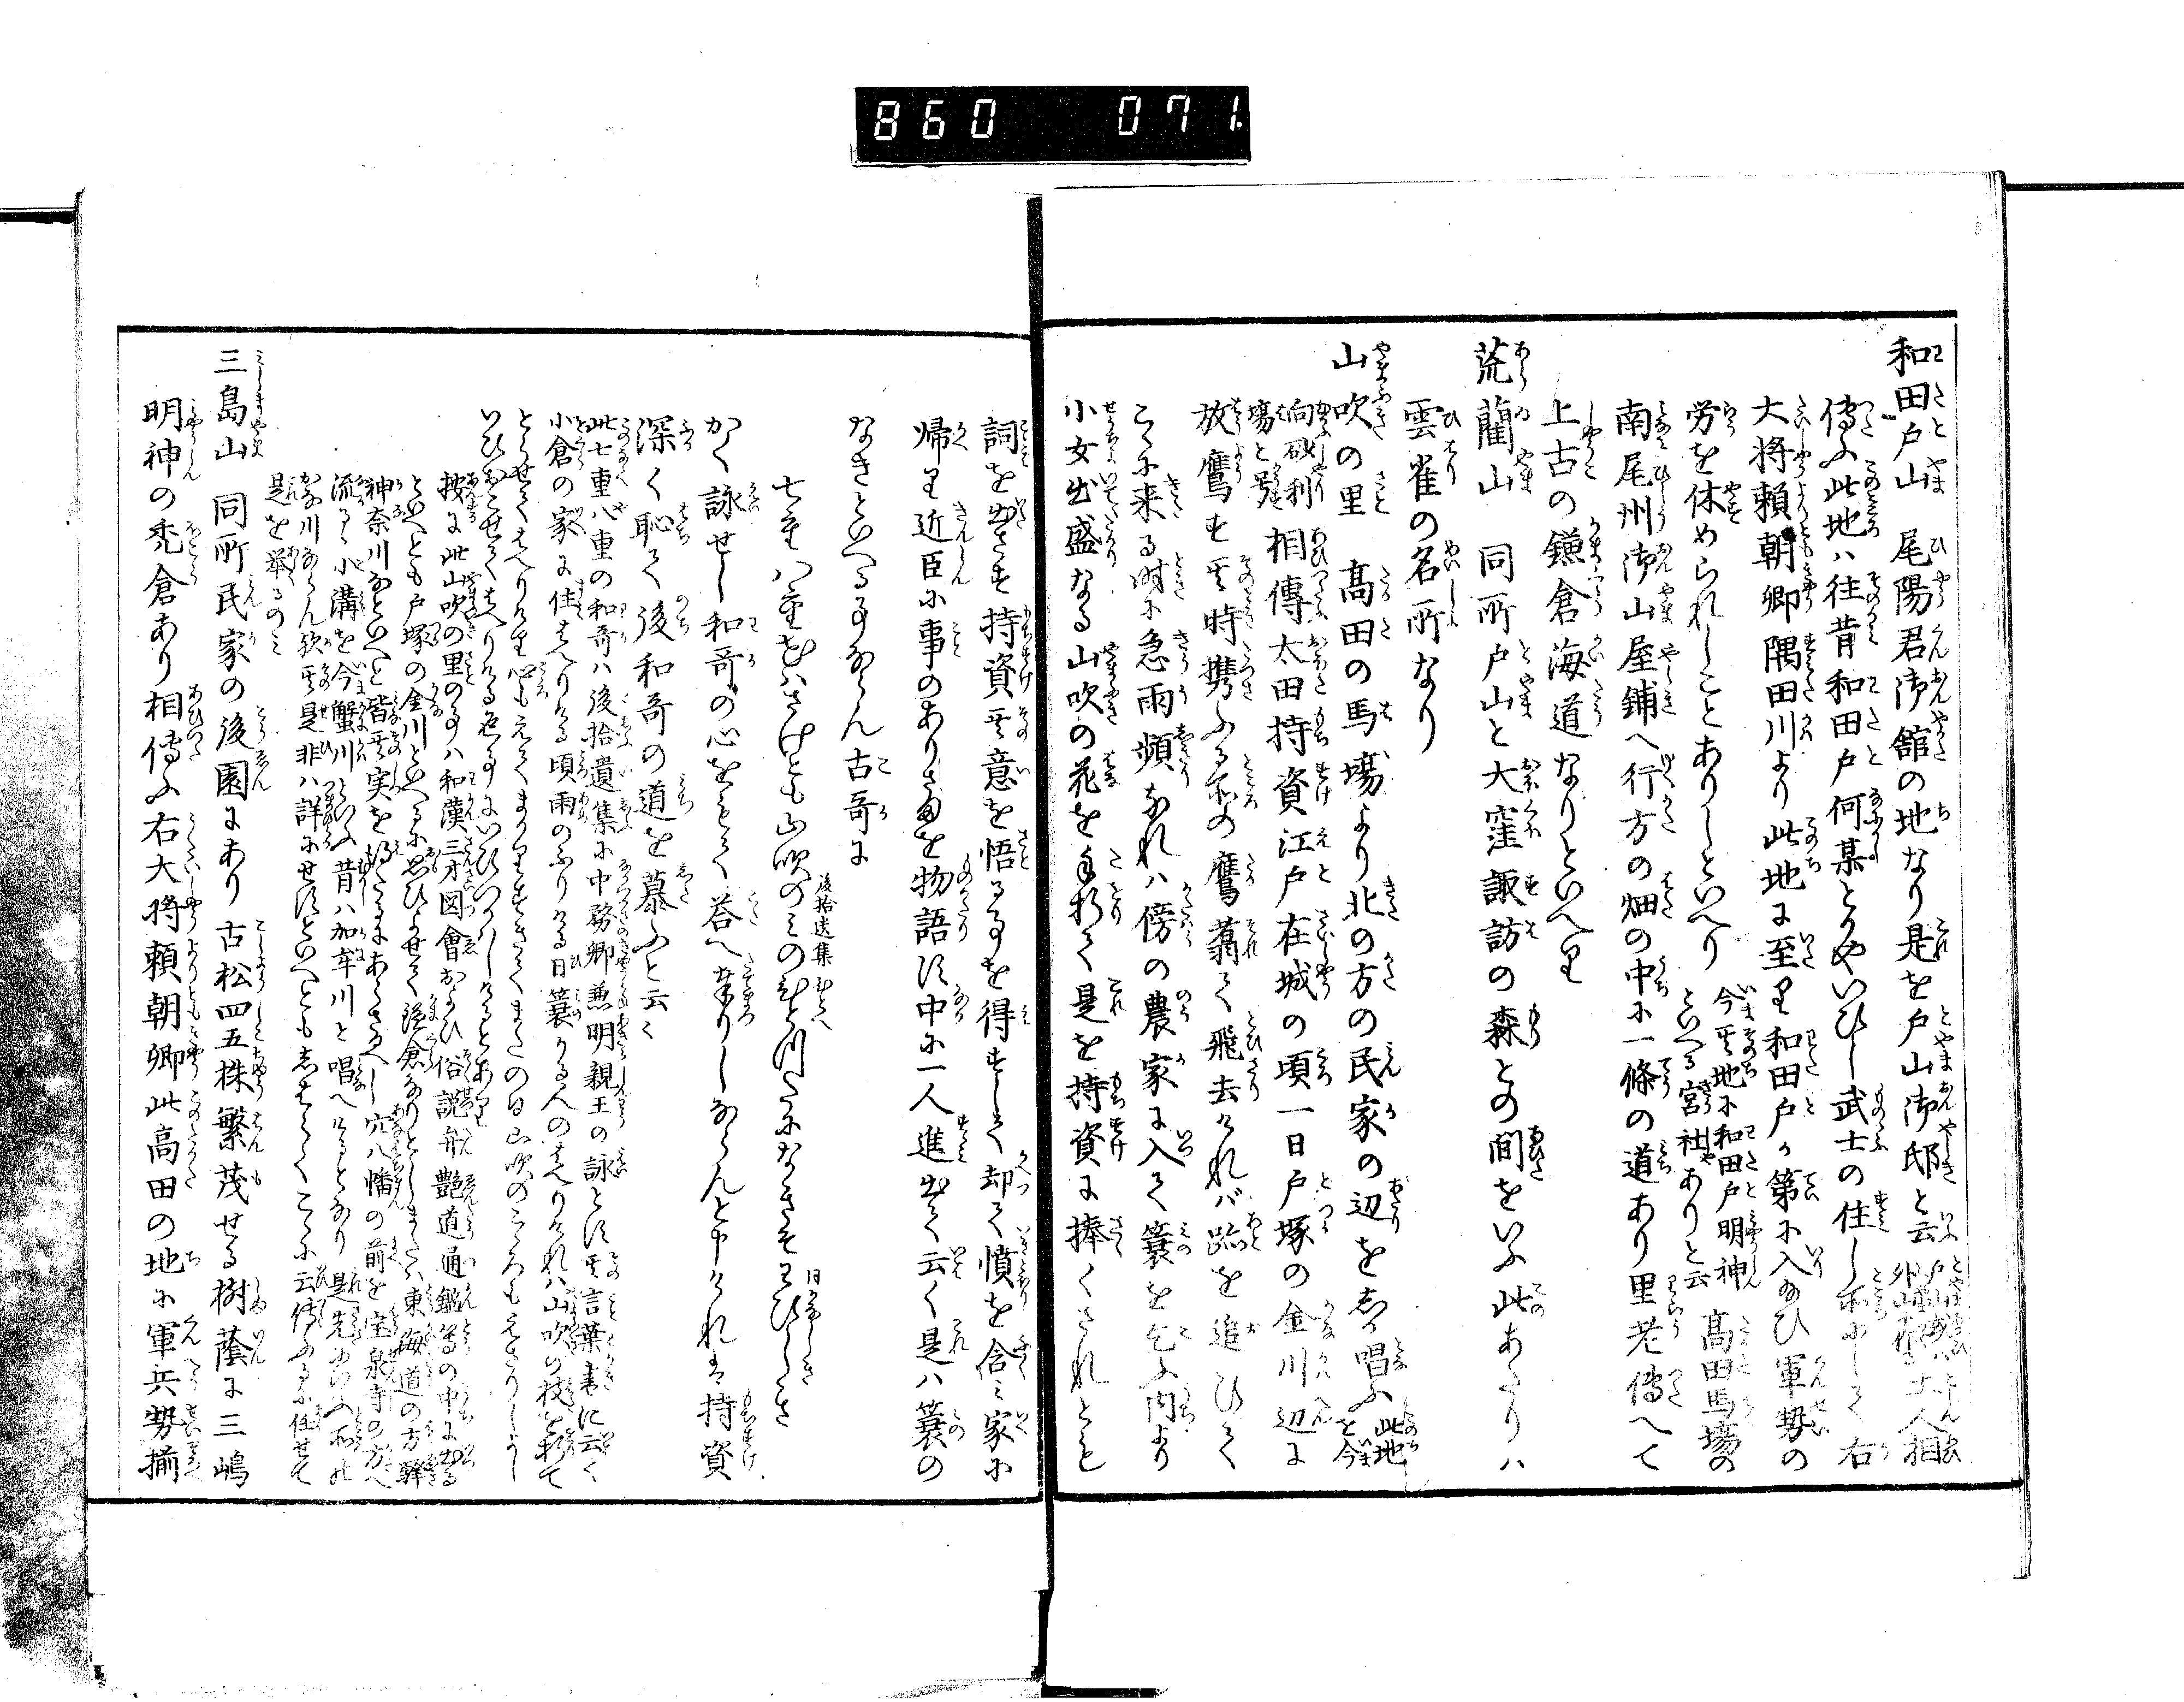 860 071.
和田戸山 尾陽君御舘の地なり是を戸山御邸と云
傳ふ此地ハ往昔和田戸何某とかやいひし武士の住し所にして右
大将頼朝卿隅田川より此地に至り和田戸が第に入給ひ軍勢の
労を休められしことありしといへり 今其地に和田戸明神といへる宮社ありと云 高田馬場の
南尾州御山屋鋪へ行方の畑の中に一條の道あり里老傳へて
上古の鎌倉海道なりといへり
荒藺山 同所戸山と大窪諏訪の森との間をいふ此あたりハ
雲雀の名所なり
山吹の里 高田の馬場より北の方の民家の辺をしか唱ふ 此地を今
向砂利場と号く 相傳太田持資江戸在城の頃一日戸塚の金川辺に
放鷹す其時携ふる所の鷹翦て飛去けれバ跡を追ひて
こゝに来る時に急雨頻なれハ傍の農家に入て簑を乞ふ内より
小女出盛なる山吹の花を手折て是を持資に捧くされとも
詞を出さす持資其意を悟る事を得すして却て憤を含ミ家に
帰り近臣に事のありさまを物語す中に一人進出て云く是ハ簑の
なきといへる事ならん古哥に
後拾遺集
七重八重花ハさけとも山吹のミのひとつたになきそわひしき
かく詠せし和哥の心をもて答へ奉りしならんと申けれは持資
深く恥て後和哥の道を慕ふと云く
此七重八重の和哥ハ後拾遺集に中務卿兼明親王の詠とす其言葉書に云く
小倉の家に住はへりける頃雨のふりける日簑かる人のはへりけれハ山吹の枝を折て
とらせてはへりけり心もえてまかりすきて又の日山吹のこゝろもえさりしよし
いひおこせてはへりける返事にいひつかはしけるとあり
按に此山吹の里の事ハ和漢三才図會および俗説弁艶道通鑑等の中に出る
といへとも戸塚の金川といへるに思ひよせて鎌倉なりとしまたハ東海道の方程
神奈川なといへと皆其実を得さるにあらさるへし穴八幡の前を宝泉寺の方へ
流るゝ小溝を今蟹川といふ昔ハ加奈川と唱へけるとなり是先にいふ所の
かな川ならん歟其是非ハ詳にせすといへともしはらくこゝに云傳ふるに任せて
是を挙るのミ
三島山 同所民家の後園にあり古松四五株繁茂せる樹蔭に三嶋
明神の禿倉あり相傳ふ右大将頼朝卿此高田の地に軍兵勢揃